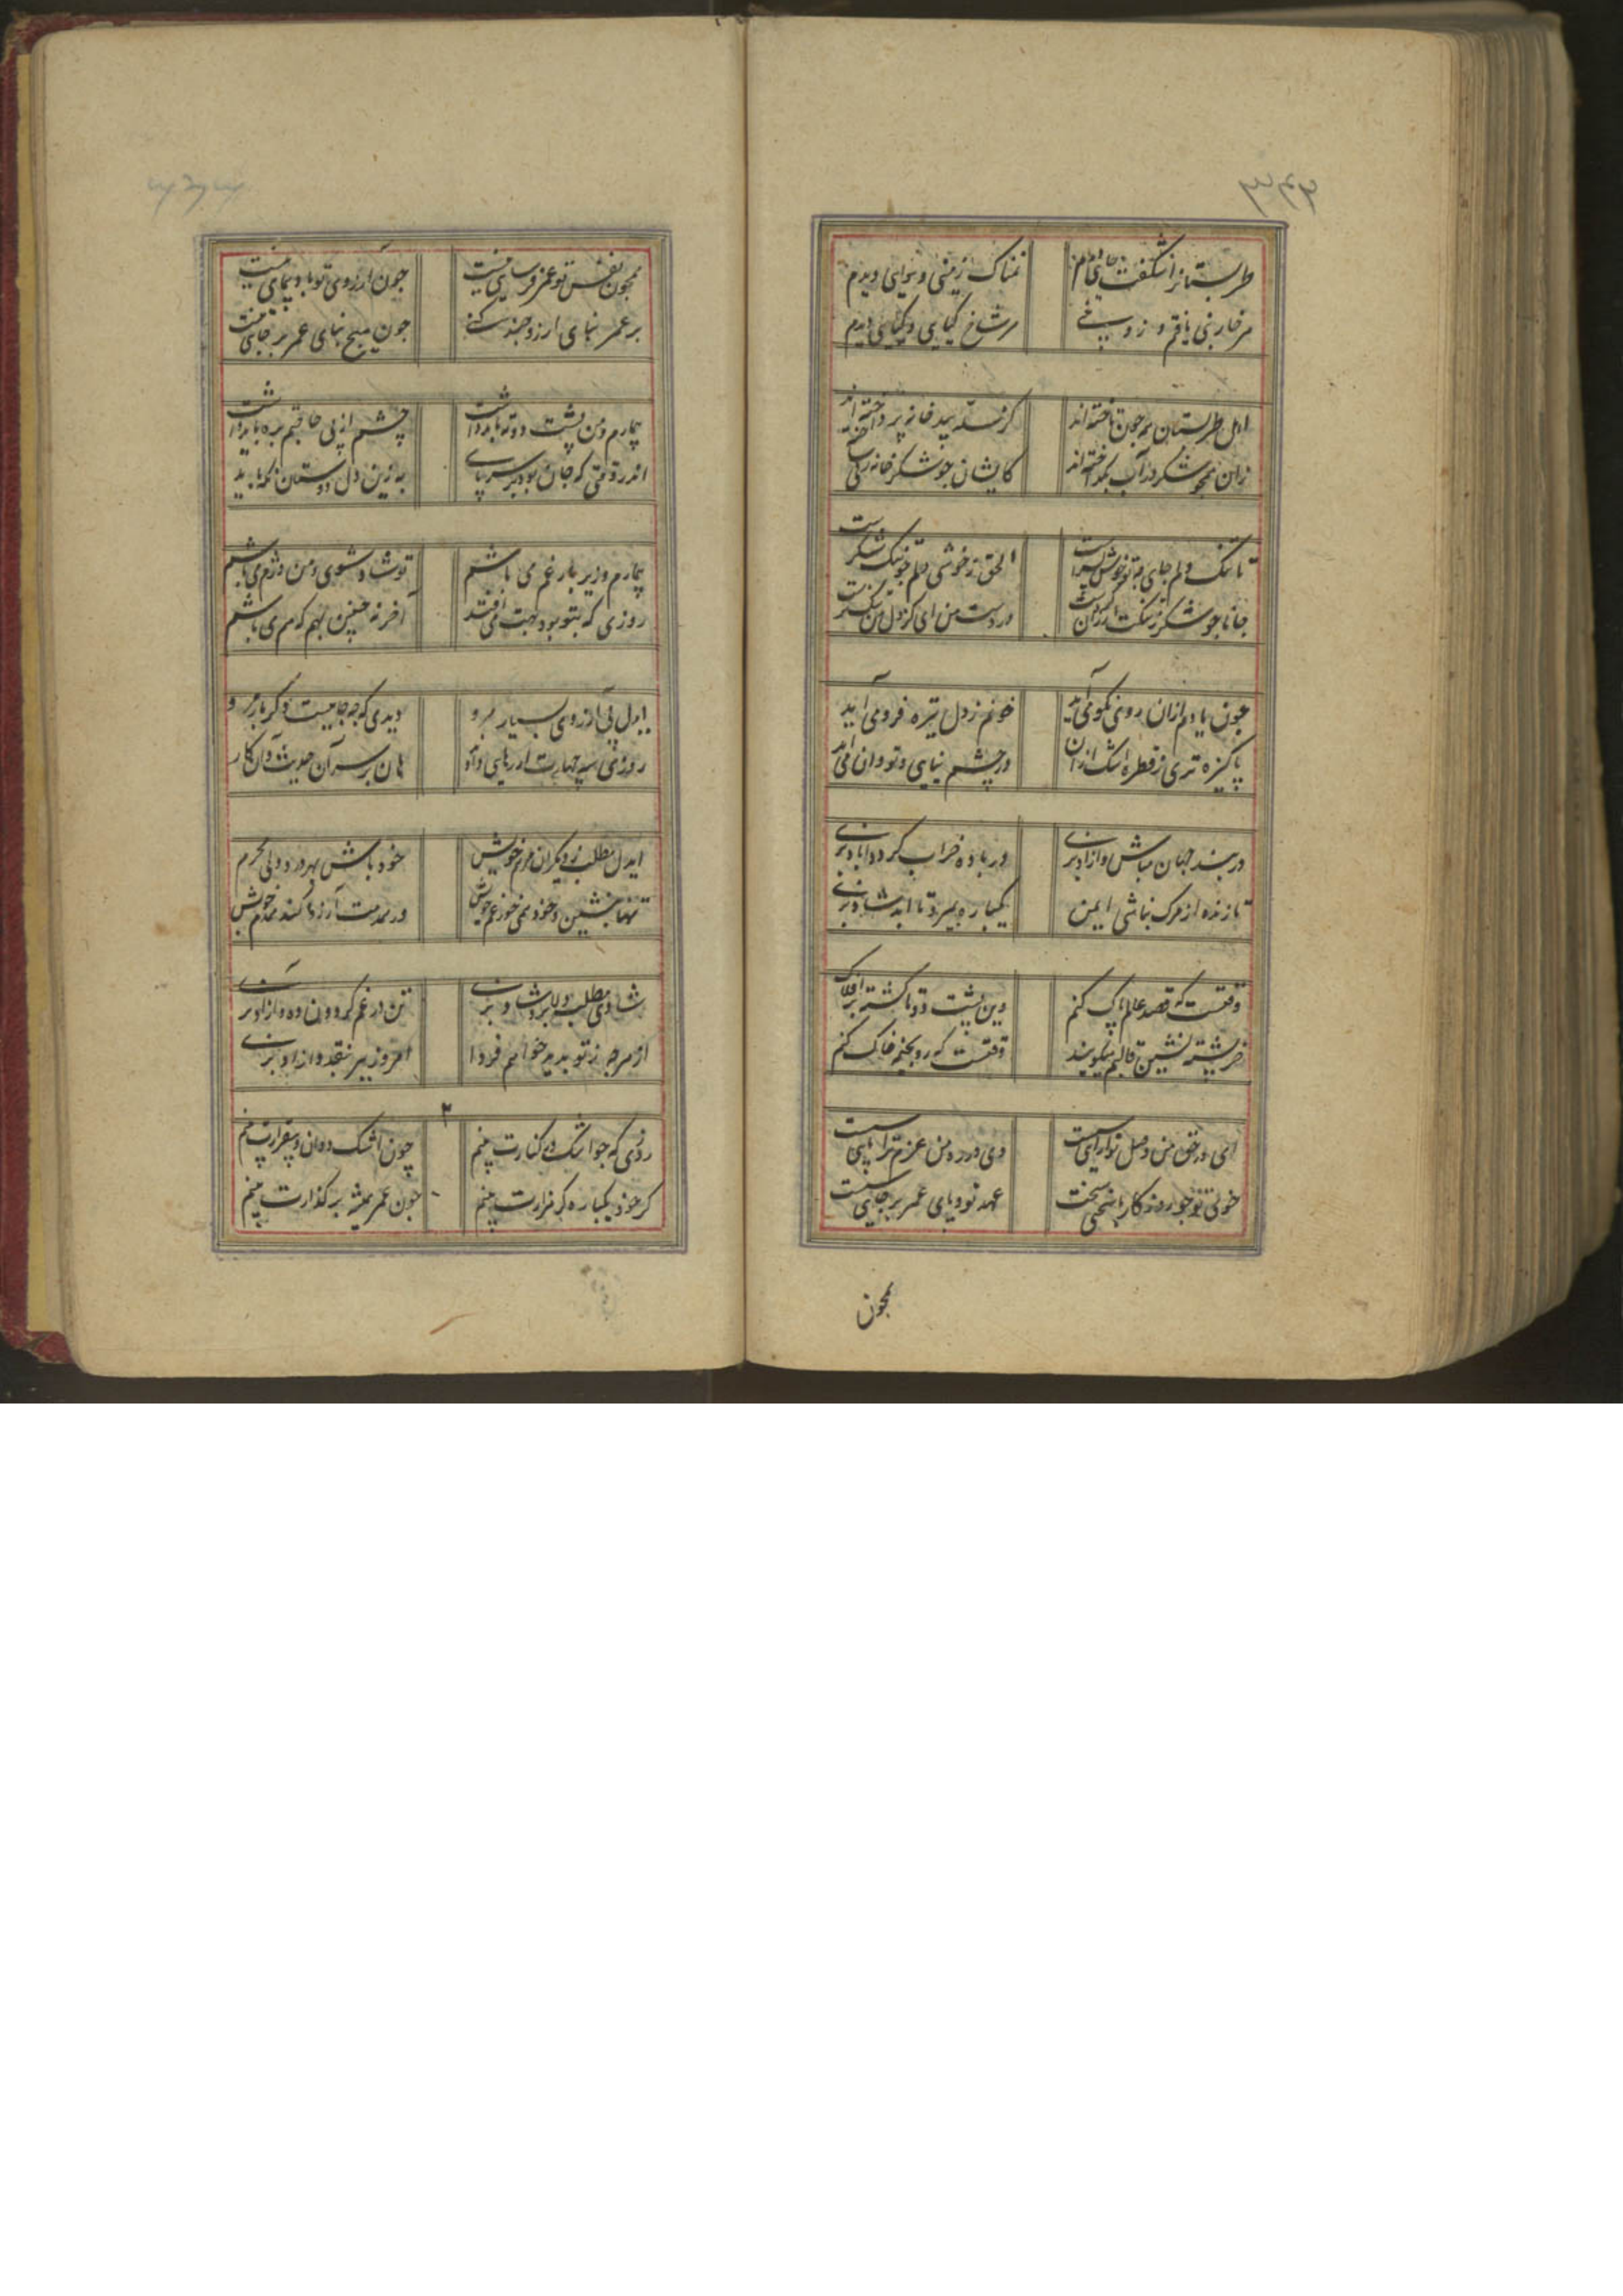 ۳۴۶
طبرستانرا شگفت جای دیدم
نمناک زمینی و نوایی دیدم
هر خاربنی یافتم و زو شاخی
هر شاخ گیایی و گیایی دیدم
اهل طبرستان همه چون تاخته اند
کز غله بید خانه پرداخته اند
زان همچو شکر در آب بگداخته اند
کایشان چو شکر خانه زنی ساخته اند
تا تنک دلم جای چو تو خوش پسرست
الحق ز خوشی دلم چو تنک شکرست
جانا چو شکر ز تنکت ار
در دست من ای کز دل من تنک ترست
چون یا دلم ازان روی نکو می آید
خونم ز دل تیره فرو می آید
پاکیزه تری ز قطره اشک ازان
در چشم نیایی و تو دران می آید
در بند جهان مباش و آزاد بزی
در باده خراب گرد و آباد بزی
تا زنده از مرک نباشی ایمن
یکباره بمیر و تا ابد شاد بزی
وقتست که قصد عالم پاک کنم
وین پشت دوتا گشته بر افلاک
خر پشته نشین قالبم میگویند
وقتست که رو بخیمه خاک کنم
ای در حق من وصل تو را رای سست
وی در ره من عزم ترا پای سست
خوی تو چو روزکار با سختی سخت
عهد تو و پای عمر بر جای سست
همچون
۳۴۷
همچون نفس تو عمر فرسایی نیست
چون آرزوی تو باد پیمایی نیست
بر عمر بنای آرزو چند کنی
چون هیچ بنای عمر بر جای نیست
بیمارم و من پشت دوته باید داشت
چشم از پی حاقبتم بره باید داشت
اندر وقتی که جان بود بر سر پای
به زین دل دوستان نکه باید
بیمارم و زیر بار غم می باشم
تو شاد شوی و من دژم می باشم
روزی که بتو بود هبت می افتد
آخر نه چنین بهم که هم می باشم
ایدل پی آرزوی بسیار مرو
دیدی که چه جامیست دکر بار مرو
روزی سه چهارت ار رهایی دادند
هان بر سر آن حدیث و آن کار
ایدل مطلب ز دیکران مرهم خویش
خود باش بهر درد دلی محرم
تنها بنشین و خود همی خور غم خویش
ور همدمت آرزو کند همدم خویش
شادی مطلب دلا و ناشاد بزی
تن در غم گردون ده و آزاد بزی
از هرچه ز تو بدید خواهم فردا
امروز ببر بنقد و آزاد بزی
روزی که چو اشک در کنارت بینم
چون اشک دوان و بیقرارت بینم
گر خود یکباره گر هزارت بینم
چون عمر همیشه بر گذارت بینم